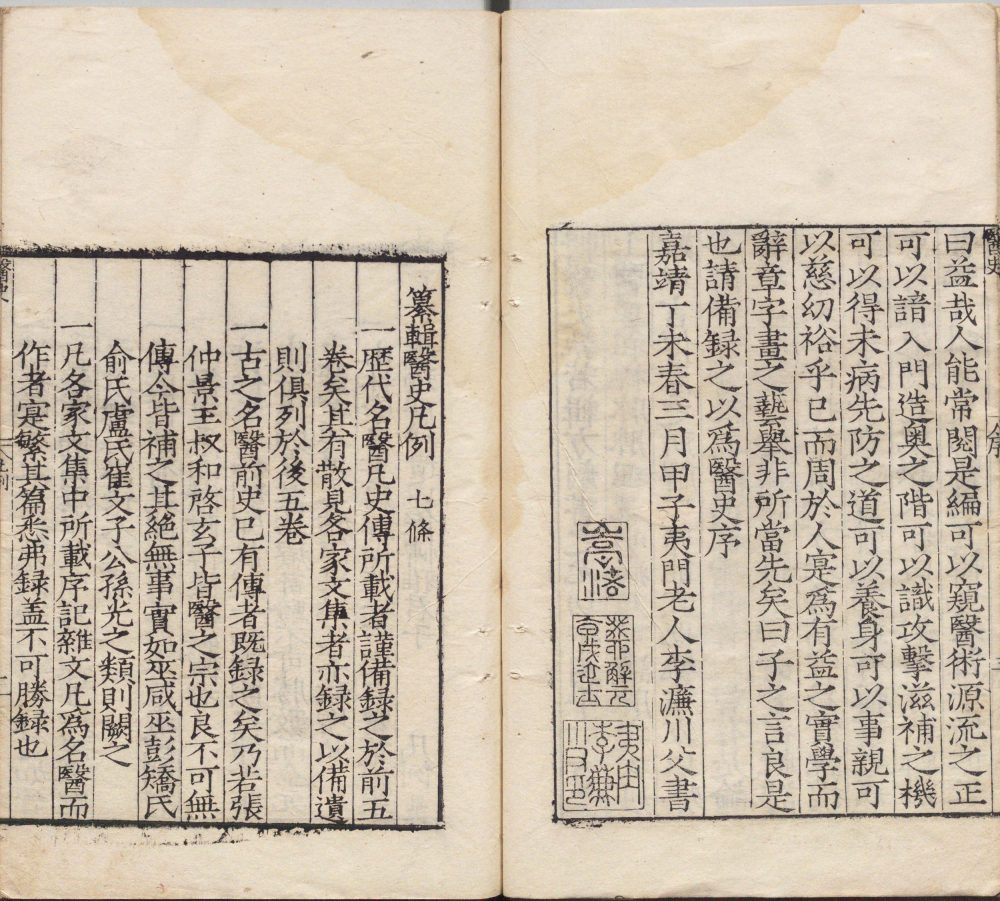 曰益哉人能常閱是編可以窺醫術源流之正
可以諳入門造奧之階可以識攻擊滋補之機
可以得未病先防之道可以養身可以事親可
以慈幼裕乎已而周於人寔爲有益之實學而
辭章字畫之藝舉非所當先矣曰子之言良是
也請備録之以爲醫史序
嘉靖丁未春三月甲子夷門老人李濂川父書
嵩渚
纂輯醫史凡例 七條
一歷代名醫凡史傳所載者謹備録之於前五
卷矣其有散見各家文集者亦録之以備遺
則俱列於後五卷
一古之名醫前史已有傳者既録之矣乃若張
仲景王叔和啓玄子皆醫之宗也良不可無
傳今皆補之其絶無事實如巫咸巫彭矯氏
俞氏盧氏崔文子公孫光之類則闕之
一凡各家文集中所載序記雜文凡爲名醫而
作者寔繁其篇悉弗録盖不可勝録也
醫史